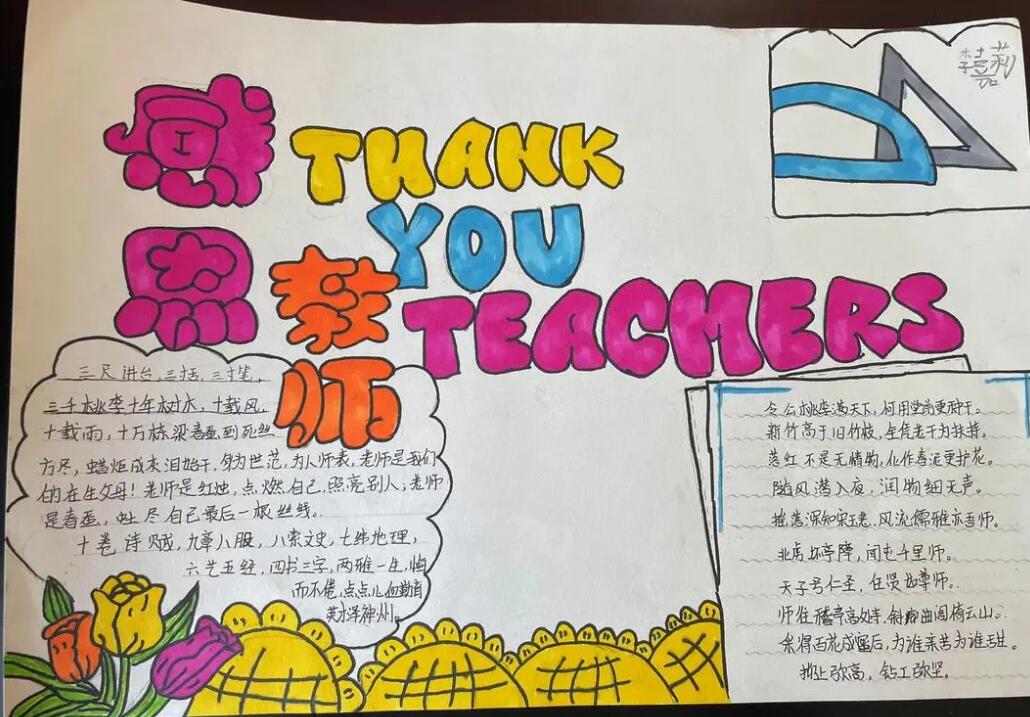 感恩
教师
THANK
YOU
TEACHERS
桂嘉莉
三尺讲台,三
三千桃李十年树木,十载风
十载雨,十万栋梁春蚕到死丝
方尽,蜡炬成灰泪始干,为世范,为人师表,老师是我们
的在生父母!老师是红烛,点燃自己,照亮别人;老师
是春蚕,吐尽自己最后一根丝线。
十卷诗赋,九章八股,八索文史,七纬地理,
六艺五经,四书三字,两雅一生,
而不倦,点点心血勤育
英才泽神州。
令公桃李满天下,何用堂前更种干。
新竹高于旧竹枝,全凭老干为扶持,
落红不是无情物,化作春泥更护花。
随风潜入夜,润物细无声。
摇落深知宋玉悲,风流儒雅亦吾师。
北虏坏亭障,闻屯千里师。
天子号仁圣,任贤如尊师。
师住亭高处,斜廊曲阁倚云山。
采得百花成蜜后,为谁辛苦为谁甜。
仰之弥高,钻工弥坚。